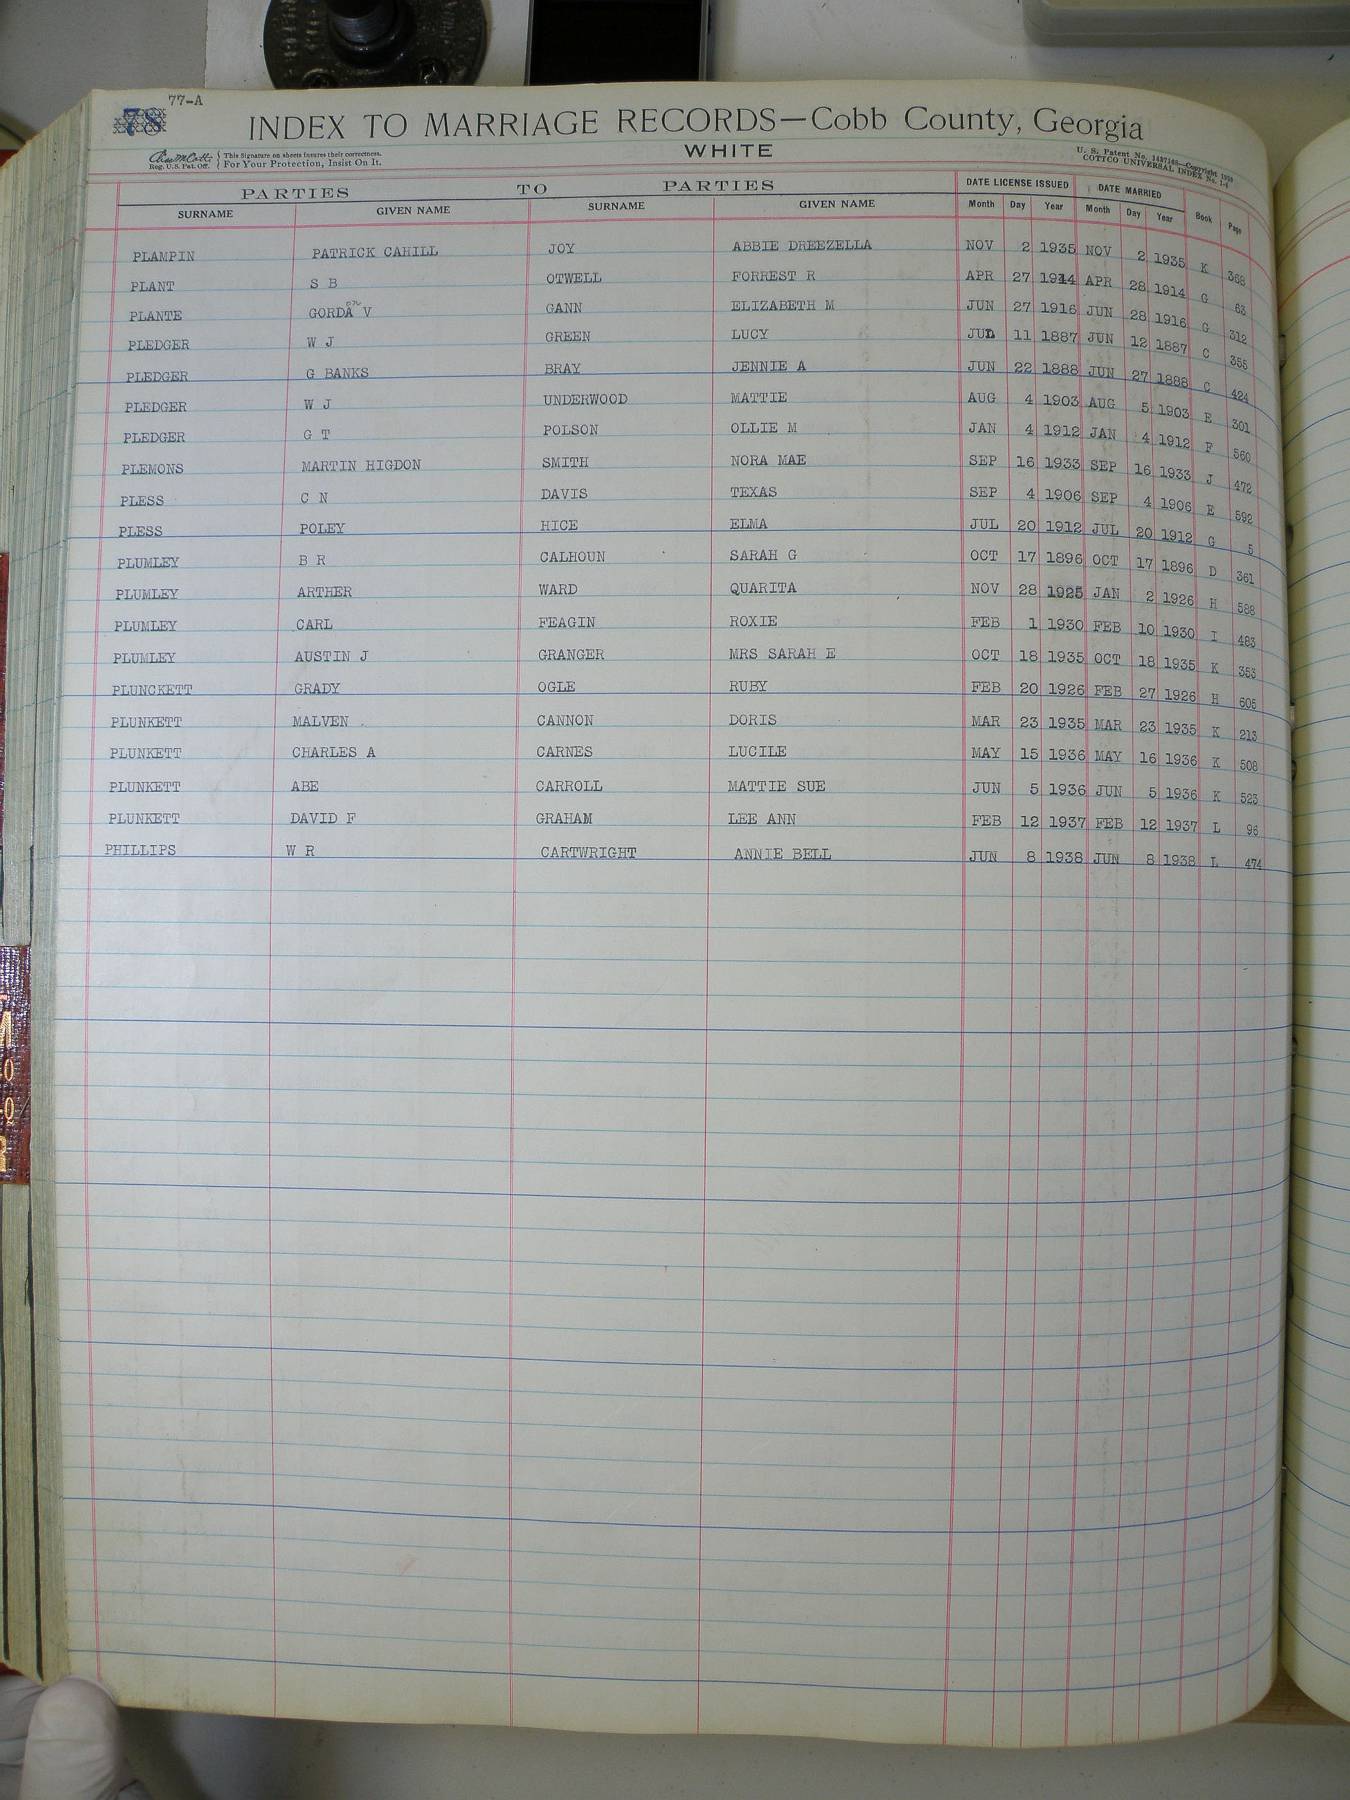 77-A
78
INDEX TO MARRIAGE RECORDS—Cobb County, Georgia
WHITE
Reg. U.S. Pat. Off. { This Signature on sheets insures their correctness. For Your Protection, Insist On It.
U. S. Patent No. Copyright
COTTCO UNIVERSAL INDEX No. 1-4
PARTIES TO PARTIES DATE LICENSE ISSUED DATE MARRIED
SURNAME GIVEN NAME SURNAME GIVEN NAME Month Day Year Month Day Year Book Page
PLAMPIN PATRICK CAHILL JOY ABBIE DREEZELLA NOV 2 1935 NOV 2 1935 K 368
PLANT S B OTWELL FORREST R APR 27 1914 APR 28 1914 G 63
PLANTE GORDA V GANN ELIZABETH M JUN 27 1916 JUN 28 1916 G 312
PLEDGER W J GREEN LUCY JUL 11 1887 JUN 12 1887 C 355
PLEDGER G BANKS BRAY JENNIE A JUN 22 1888 JUN 27 1888 C 424
PLEDGER W J UNDERWOOD MATTIE AUG 4 1903 AUG 5 1903 E 301
PLEDGER G T POLSON OLLIE M JAN 4 1912 JAN 4 1912 F 560
PLEMONS MARTIN HIGDON SMITH NORA MAE SEP 16 1933 SEP 16 1933 J 472
PLESS C N DAVIS TEXAS SEP 4 1906 SEP 4 1906 E 592
PLESS POLEY HICE ELMA JUL 20 1912 JUL 20 1912 G 5
PLUMLEY B R CALHOUN SARAH G OCT 17 1896 OCT 17 1896 D 361
PLUMLEY ARTHER WARD QUARITA NOV 28 1925 JAN 2 1926 H 588
PLUMLEY CARL FEAGIN ROXIE FEB 1 1930 FEB 10 1930 I 483
PLUMLEY AUSTIN J GRANGER MRS SARAH E OCT 18 1935 OCT 18 1935 K 353
PLUNCKETT GRADY OGLE RUBY FEB 20 1926 FEB 27 1926 H 605
PLUNKETT MALVEN CANNON DORIS MAR 23 1935 MAR 23 1935 K 213
PLUNKETT CHARLES A CARNES LUCILE MAY 15 1936 MAY 16 1936 K 508
PLUNKETT ABE CARROLL MATTIE SUE JUN 5 1936 JUN 5 1936 K 523
PLUNKETT DAVID F GRAHAM LEE ANN FEB 12 1937 FEB 12 1937 L 96
PHILLIPS W R CARTWRIGHT ANNIE BELL JUN 8 1938 JUN 8 1938 L 474